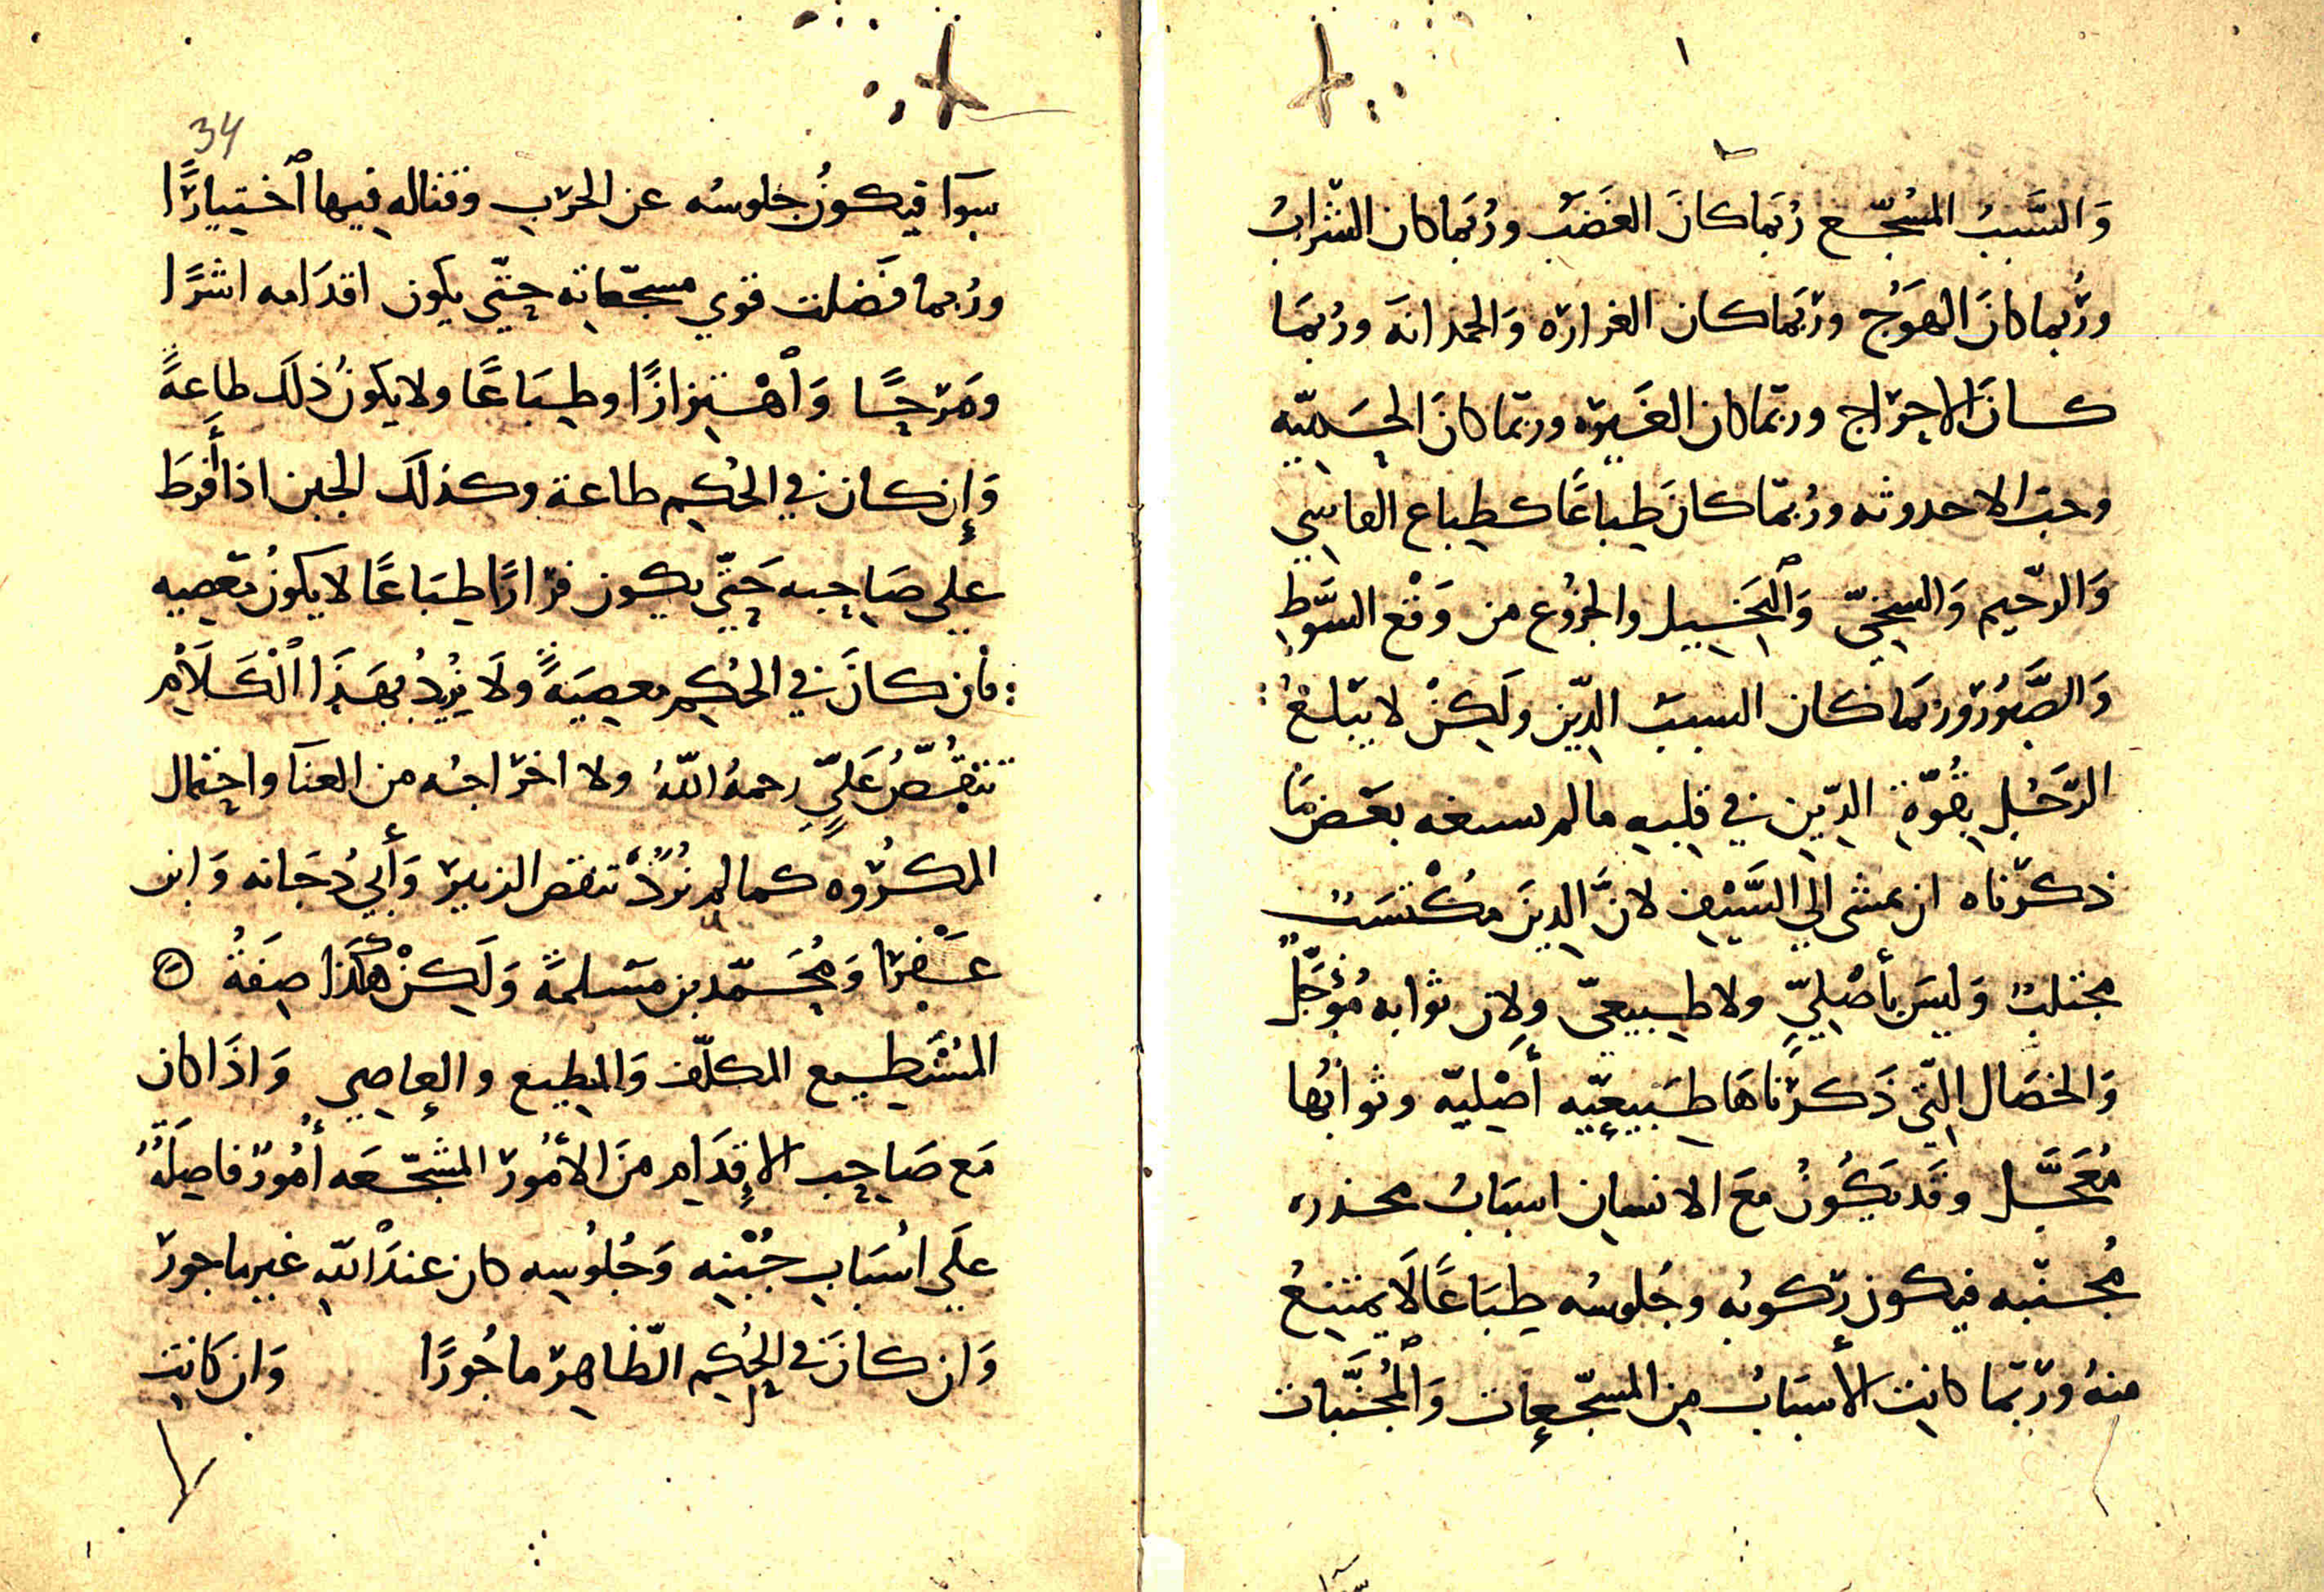 وَالسَّبَبُ المُشجّع رُبَما كانَ الغَضَبَ ورُبَما كان الشّرابُ
ورُبما كانَ الهَوَجُ وربَما كان الغرارَه وَالحمدانَه ورُبمَا
كانَ الاحرَاج وربّما كان الغَيرَه وربّما كانَ الحَميّه
وحبّ الاحدوثه ورُبمّا كانَ طِباعًا كطِباع القاسِي
وَالرّحيم وَالسخِيّ وَالبَخيل والجزُوع من وَقْع السَّوطِ
وَالصَّبُورَ وربمَا كان السببَ الدِّين ولَكِنْ لا يَبلغُ
الرّجُل بِقُوّةِ الدِّينِ في قلبِه ما لم يسعه بعَض مَا
ذكرناه ان يمشى الي السَّيْفِ لانَّ الدِينَ مُكْتسَبُ
مجتلبُ وَليسَ بأصْلِيٍّ ولا طبيعيّ ولان ثوابه مُؤَجَّلٌ
وَالخصَال التِّي ذَكرْنَاهَا طَبيعيّه أصْليّه وثوابُها
مُعَجَّل وقَد يَكُونُ معَ الانسان اسبَابُ محذره
مُجنّبه فيكون رُكوبُه وجُلوسُه طِبَاعًا لَا يمتنعُ
منهُ وربّما كانت الأسبَابُ من المشجّعات وَٱلمُجنَّبات
34
سوآ فيكونُ جلوسُه عن الحرَب وقتاله فيها ٱختيارًا
ورُبما فَضلت قوي مشجّعاته حتّي يكون اقدَامه اشَرًا
ومَرَحًا وَٱهْتِزازًا وطِبَاعًا ولا يكونُ ذلَك طاعةً
وَإن كان في الحُكم طاعة وكذلَك الجبن اذا أَفرطَ
علي صَاحِبه حَتّي يكون فرَارًا طبَاعًا لا يكونُ مَعصيه
فان كانَ في الحُكم معصِيَةً ولَا نُرِيدُ بهَذَا ٱلْكَلَاْم
تنقُّصَ عَليٍّ رحمهُ اللّهُ ولا اخرَاجهُ من العنآ واحتمال
المكرُوه كما لم نُرِدْ تنقصَ الزبيرَ وَأَبي دُجَانه وَابن
عَفْرا وَمُحَمّد بن مَسْلمةَ وَلَكِنْ هكَذَا صِفَةُ
المُسْتَطيع المكلّف وَالمطيع والعاصِي وَاذَا كان
مَع صَاحِب الإقدَامِ منَ الأمُورَ المشجّعَه أُمُورٌ فاصِلَةُ
علَي اسْبَابِ جُبْنِه وَجُلُوسِه كان عندَ اللّهِ غير ماجورَ
وَان كانَ في الحُكم الظّاهرَ ماجُورًا وَان كَانت